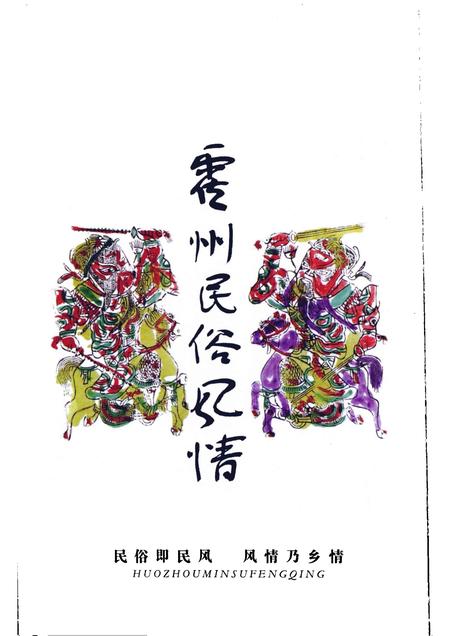 霍州民俗风情
民俗即民风　风情乃乡情
HUOZHOUMINSUFENGQING